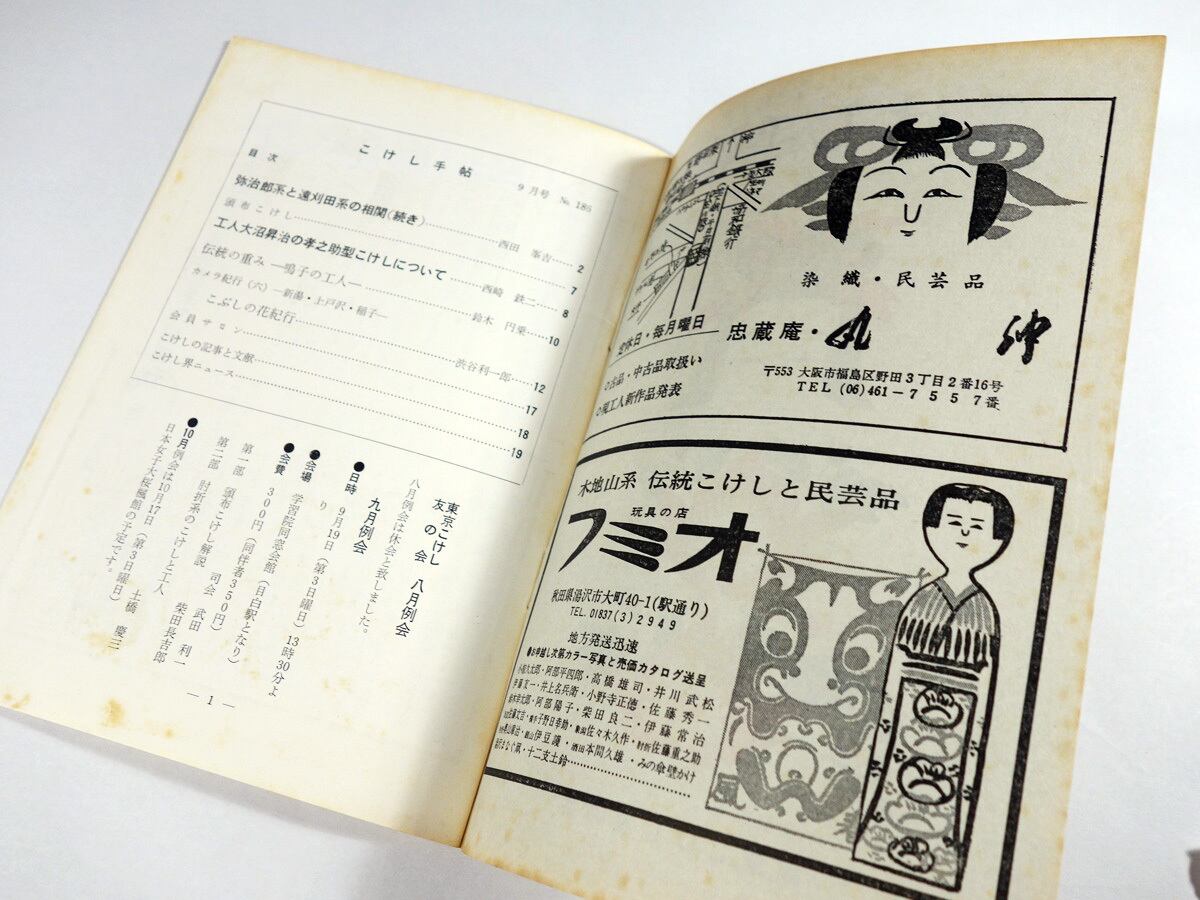 こけし手帖
9月号 No. 186
目次
弥治郎系と遠刈田系の相関(続き)……西田 峯吉……2
頒布こけし……7
工人大沼昇治の孝之助型こけしについて……西崎 鉄二……8
伝統の重み ―鳴子の工人―……鈴木 円乗……10
カメラ紀行(六)―新湯・上戸沢・稲子―
こぶしの花紀行……渋谷利一郎……12
会員サロン……17
こけしの記事と文献……18
こけし界ニュース……19
東京こけし友の会 八月例会
八月例会は休会と致しました。
九月例会
●日時 9月19日(第3日曜日) 13時30分より
●会場 学習院同窓会館(目白駅となり)
●会費 300円(同伴者350円)
第一部 頒布こけし解説 司会 武田 利一
第二部 肘折系のこけしと工人 柴田長吉郎
●10月例会は10月17日(第3日曜日) 土橋 慶三
日本女子大桜楓館の予定です。
― 1 ―
定休日・毎月曜日
○古品・中古品取扱い
○現工人新作品発表
染織・民芸品
忠蔵庵・
〒553 大阪市福島区野田3丁目2番16号
TEL (06)461-7557番
木地山系 伝統こけしと民芸品
玩具の店
フミオ
秋田県湯沢市大町40-1(駅通り)
TEL. 01837(3)2949
地方発送迅速
●お申越し次第カラー写真と売価カタログ送呈
小椋久太郎・阿部平四郎・高橋雄司・井川武松
伊藤文一・井上名兵衛・小野寺正徳・佐藤秀一
阿部陽子・柴田良二・伊藤常治
佐々木久作・佐藤重之助
伊豆護・本間久雄・みの傘壁かけ
十二支土鈴